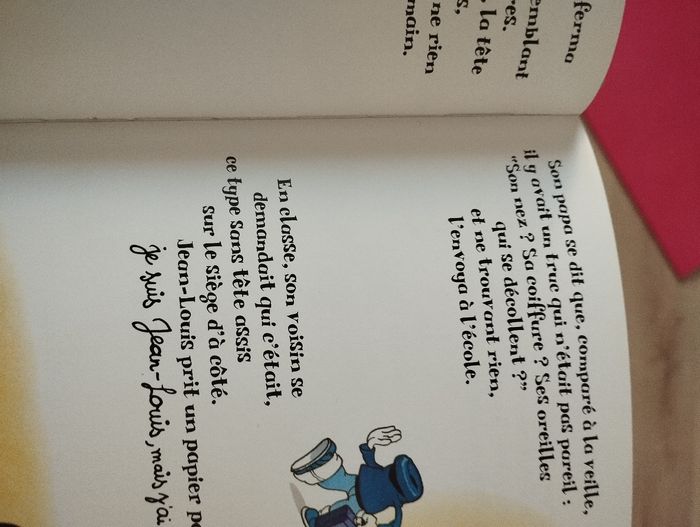 ferma
emblant
res.
, la tête
s,
ne rien
main.
Son papa se dit que, comparé à la veille,
il y avait un truc qui n'était pas pareil :
"Son nez ? Sa coiffure ? Ses oreilles
qui se décollent ?"
et ne trouvant rien,
l'envoya à l'école.
En classe, son voisin se
demandait qui c'était,
ce type sans tête assis
sur le siège d'à côté.
Jean-Louis prit un papier po
je suis Jean-Louis, mais j'ai